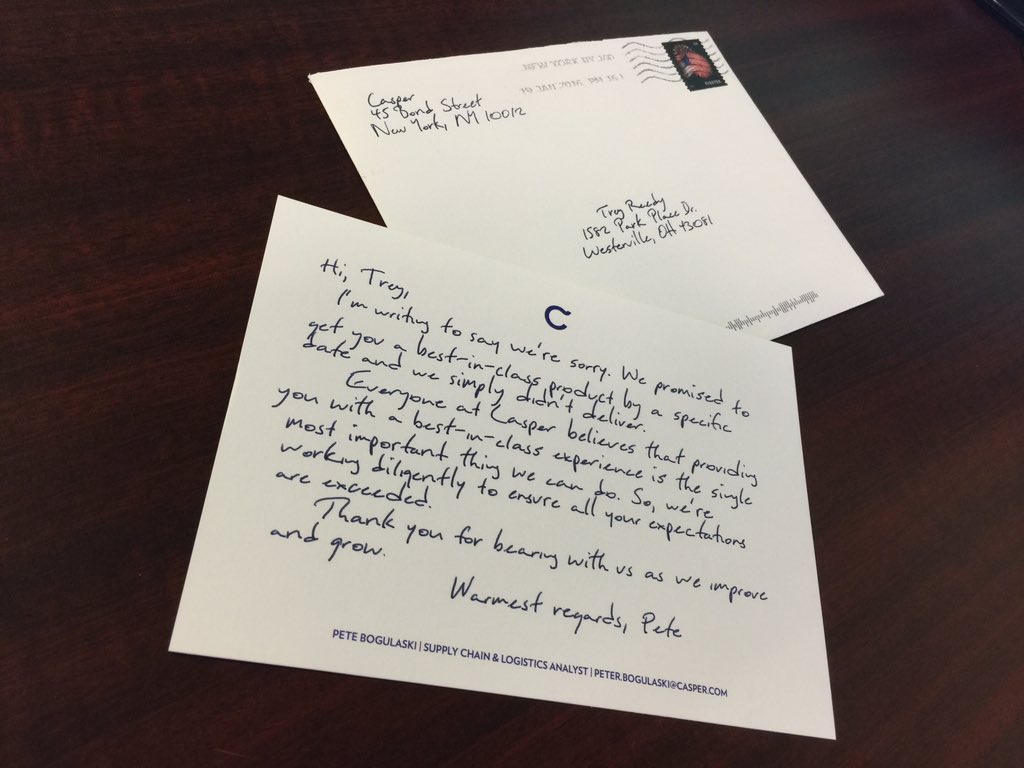 NEW YORK NY 100
19 JAN 2016 PM 16 L
Casper
45 Bond Street
New York, NY 10012
Trey Reedy
1582 Park Place Dr.
Westerville, OH 43081
C
Hi, Trey,
I'm writing to say we're sorry. We promised to
get you a best-in-class product by a specific
date and we simply didn't deliver.
Everyone at Casper believes that providing
you with a best-in-class experience is the single
most important thing we can do. So, we're
working diligently to ensure all your expectations
are exceeded.
Thank you for bearing with us as we improve
and grow.
Warmest regards, Pete
PETE BOGULASKI | SUPPLY CHAIN & LOGISTICS ANALYST | PETER.BOGULASKI@CASPER.COM